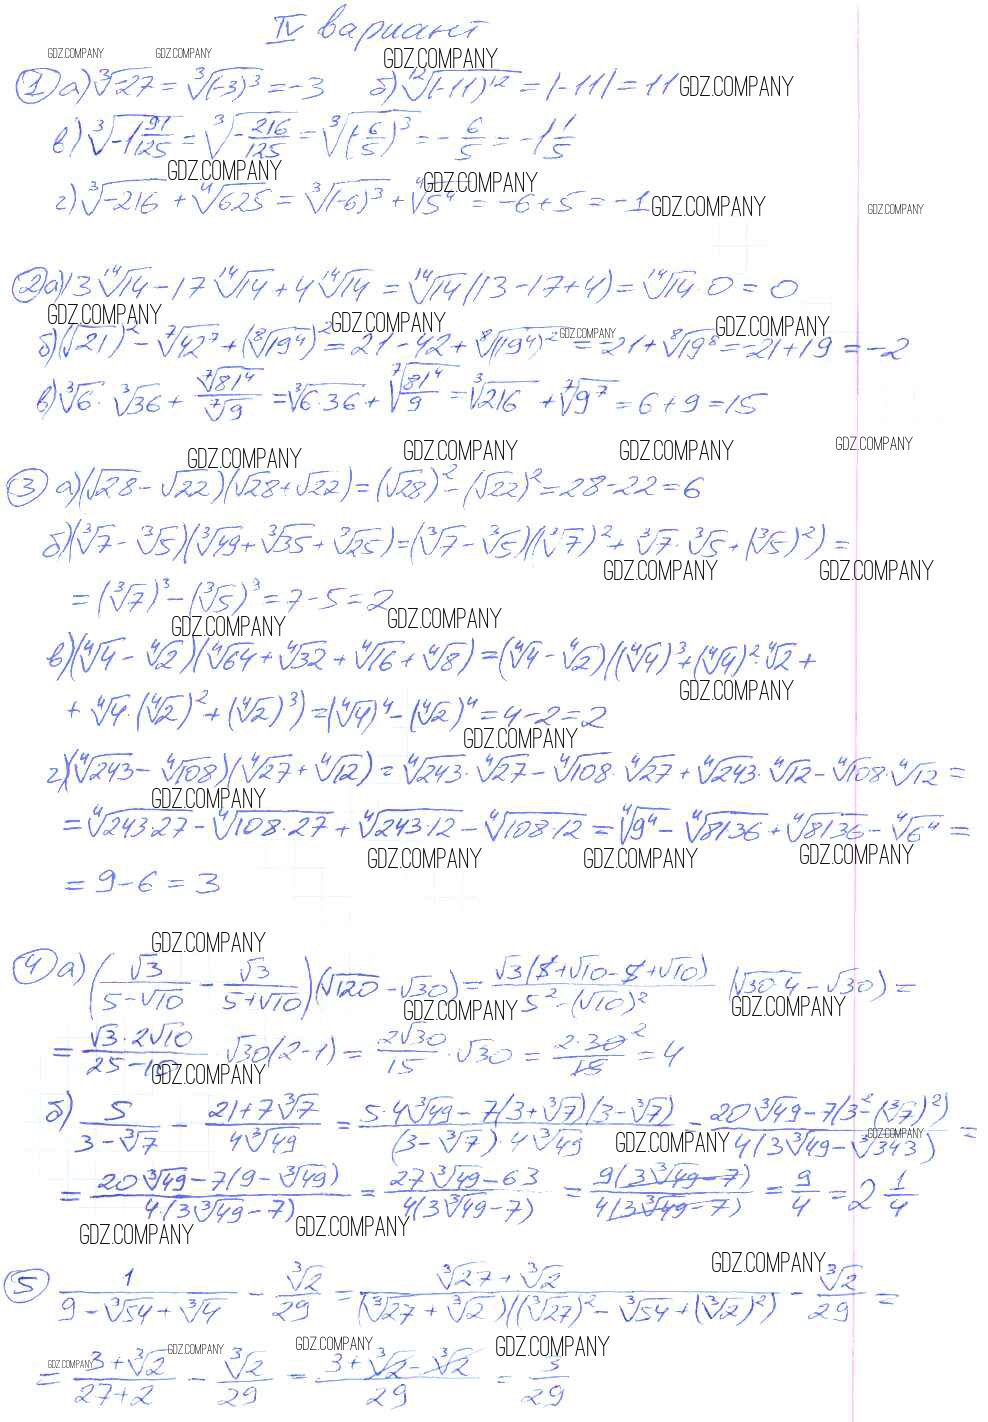 IV вариант
GDZ.COMPANY GDZ.COMPANY GDZ.COMPANY
① а) ∛-27 = ∛(-3)³ = -3 б) ¹²√(-11)¹² = |-11| = 11 GDZ.COMPANY
в) ∛-1 91/125 = ∛-216/125 = ∛(-6/5)³ = -6/5 = -1 1/5
GDZ.COMPANY GDZ.COMPANY
г) ∛-216 + ⁴√625 = ∛(-6)³ + ⁴√5⁴ = -6+5 = -1 GDZ.COMPANY GDZ.COMPANY
② а) 13 ¹⁴√14 - 17 ¹⁴√14 + 4 ¹⁴√14 = ¹⁴√14 (13-17+4) = ¹⁴√14 · 0 = 0
GDZ.COMPANY GDZ.COMPANY GDZ.COMPANY GDZ.COMPANY
б) (√21)² - ⁷√42⁷ + (⁸√19⁴)² = 21-42 + ⁸√(19⁴)² = -21 + ⁸√19⁸ = -21+19 = -2
в) ∛6 · ∛36 + ⁷√81⁴/⁷√9 = ∛6·36 + ⁷√81⁴/9 = ∛216 + ⁷√9⁷ = 6+9 = 15
GDZ.COMPANY GDZ.COMPANY GDZ.COMPANY GDZ.COMPANY
③ а) (√28 - √22)(√28 + √22) = (√28)² - (√22)² = 28-22 = 6
б) (∛7 - ∛5)(∛49 + ∛35 + ∛25) = (∛7 - ∛5)((∛7)² + ∛7 · ∛5 + (∛5)²) =
GDZ.COMPANY GDZ.COMPANY
= (∛7)³ - (∛5)³ = 7-5 = 2
GDZ.COMPANY GDZ.COMPANY
в) (⁴√4 - ⁴√2)(⁴√64 + ⁴√32 + ⁴√16 + ⁴√8) = (⁴√4 - ⁴√2)((⁴√4)³ + (⁴√4)² · ⁴√2 +
GDZ.COMPANY
+ ⁴√4 · (⁴√2)² + (⁴√2)³) = (⁴√4)⁴ - (⁴√2)⁴ = 4-2 = 2
GDZ.COMPANY
г) (⁴√243 - ⁴√108)(⁴√27 + ⁴√12) = ⁴√243 · ⁴√27 - ⁴√108 · ⁴√27 + ⁴√243 · ⁴√12 - ⁴√108 · ⁴√12 =
GDZ.COMPANY
= ⁴√243·27 - ⁴√108·27 + ⁴√243·12 - ⁴√108·12 = ⁴√9⁴ - ⁴√81·36 + ⁴√81·36 - ⁴√6⁴ =
GDZ.COMPANY GDZ.COMPANY GDZ.COMPANY
= 9-6 = 3
GDZ.COMPANY
④ а) (√3/(5-√10) - √3/(5+√10))(√120 - √30) = √3(5+√10-5+√10)/(5²-(√10)²) (√30·4 - √30) =
GDZ.COMPANY GDZ.COMPANY
= √3·2√10/(25-10) · √30(2-1) = 2√30/15 · √30 = 2·30/15 = 4
GDZ.COMPANY
б) 5/(3-∛7) - (21+7∛7)/(4∛49) = (5·4∛49 - 7(3+∛7)(3-∛7))/((3-∛7)·4∛49) = (20∛49 - 7(3²-(∛7)²))/(4(3∛49 - ∛343)) =
GDZ.COMPANY GDZ.COMPANY
= (20∛49 - 7(9-∛49))/(4(3∛49-7)) = (27∛49 - 63)/(4(3∛49-7)) = 9(3∛49-7)/(4(3∛49-7)) = 9/4 = 2 1/4
GDZ.COMPANY GDZ.COMPANY GDZ.COMPANY
⑤ 1/(9-∛54+∛4) - ∛2/29 = (∛27+∛2)/((∛27+∛2)((∛27)²-∛54+(∛2)²)) - ∛2/29 =
GDZ.COMPANY GDZ.COMPANY GDZ.COMPANY GDZ.COMPANY
= (3+∛2)/(27+2) - ∛2/29 = (3+∛2-∛2)/29 = 3/29